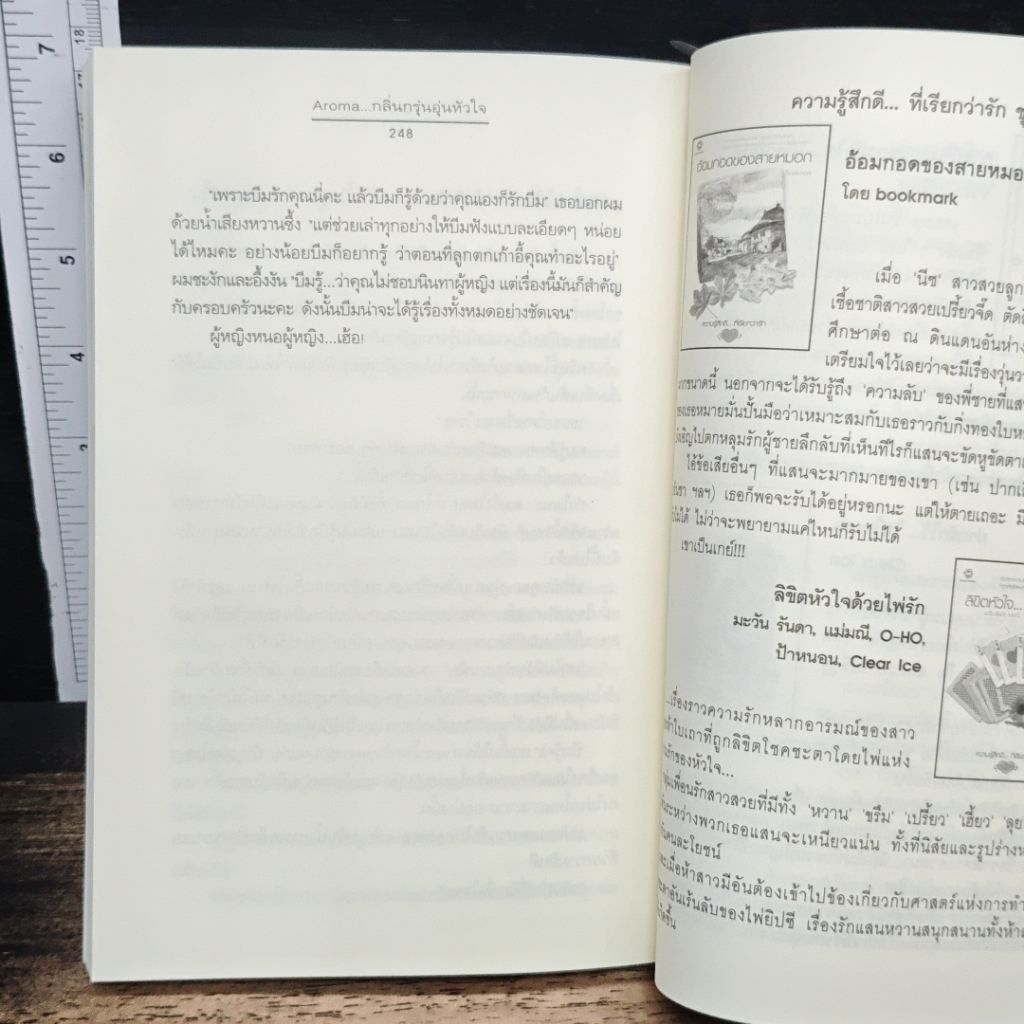 7
6
5
4
18
17
Aroma...กลิ่นกรุ่นอุ่นหัวใจ
248
"เพราะบีมรักคุณนี่คะ แล้วบีมก็รู้ด้วยว่าคุณเองก็รักบีม" เธอบอกผม
ด้วยน้ำเสียงหวานซึ้ง "แต่ช่วยเล่าทุกอย่างให้บีมฟังแบบละเอียดๆ หน่อย
ได้ไหมคะ อย่างน้อยบีมก็อยากรู้ ว่าตอนที่ลูกตกเก้าอี้คุณทำอะไรอยู่"
ผมชะงักและอึ้งงัน "บีมรู้...ว่าคุณไม่ชอบนินทาผู้หญิง แต่เรื่องนี้มันก็สำคัญ
กับครอบครัวนะคะ ดังนั้นบีมน่าจะได้รู้เรื่องทั้งหมดอย่างชัดเจน"
ผู้หญิงหนอผู้หญิง...เฮ้อ!
ความรู้สึกดี... ที่เรียกว่ารัก
อ้อมกอดของสายหมอก
ความรู้สึกดี... ที่เรียกว่ารัก
อ้อมกอดของสายหมอ
โดย bookmark
เมื่อ 'นีซ' สาวสวยลูก
เชื้อชาติสาวสวยเปรี้ยวจี๊ด ตัด
ศึกษาต่อ ณ ดินแดนอันห่าง
เตรียมใจไว้เลยว่าจะมีเรื่องวุ่นว
ขนาดนี้ นอกจากจะได้รับรู้ถึง 'ความลับ' ของพี่ชายที่แส
ของเธอหมายมั่นปั้นมือว่าเหมาะสมกับเธอราวกับกิ่งทองใบห
ไปตกหลุมรักผู้ชายลึกลับที่เห็นทีไรก็แสนจะขัดหูขัดตา
ไอ้ข้อเสียอื่นๆ ที่แสนจะมากมายของเขา (เช่น ปาก
ฯลฯ) เธอก็พอจะรับได้อยู่หรอกนะ แต่ให้ตายเถอะ มี
ไม่ได้ ไม่ว่าจะพยายามแค่ไหนก็รับไม่ได้
เขาเป็นเกย์!!!
ลิขิตหัวใจด้วยไพ่รัก
มะวัน รันดา, แม่มณี, O-HO,
ป้าหนอน, Clear Ice
ลิขิตหัวใจ...
ความรู้สึกดี...
...เรื่องราวความรักหลากอารมณ์ของสาว
ใบเถาที่ถูกลิขิตโชคชะตาโดยไพ่แห่ง
รักของหัวใจ...
เพื่อนรักสาวสวยที่มีทั้ง 'หวาน' 'ขรึม' 'เปรี้ยว' 'เฮี้ยว' 'ลุย
ระหว่างพวกเธอแสนจะเหนียวแน่น ทั้งที่นิสัยและรูปร่าง
คนละโยชน์
และเมื่อห้าสาวมีอันต้องเข้าไปข้องเกี่ยวกับศาสตร์แห่งการทำ
อันเร้นลับของไพ่ยิปซี เรื่องรักแสนหวานสนุกสนานทั้งห้า